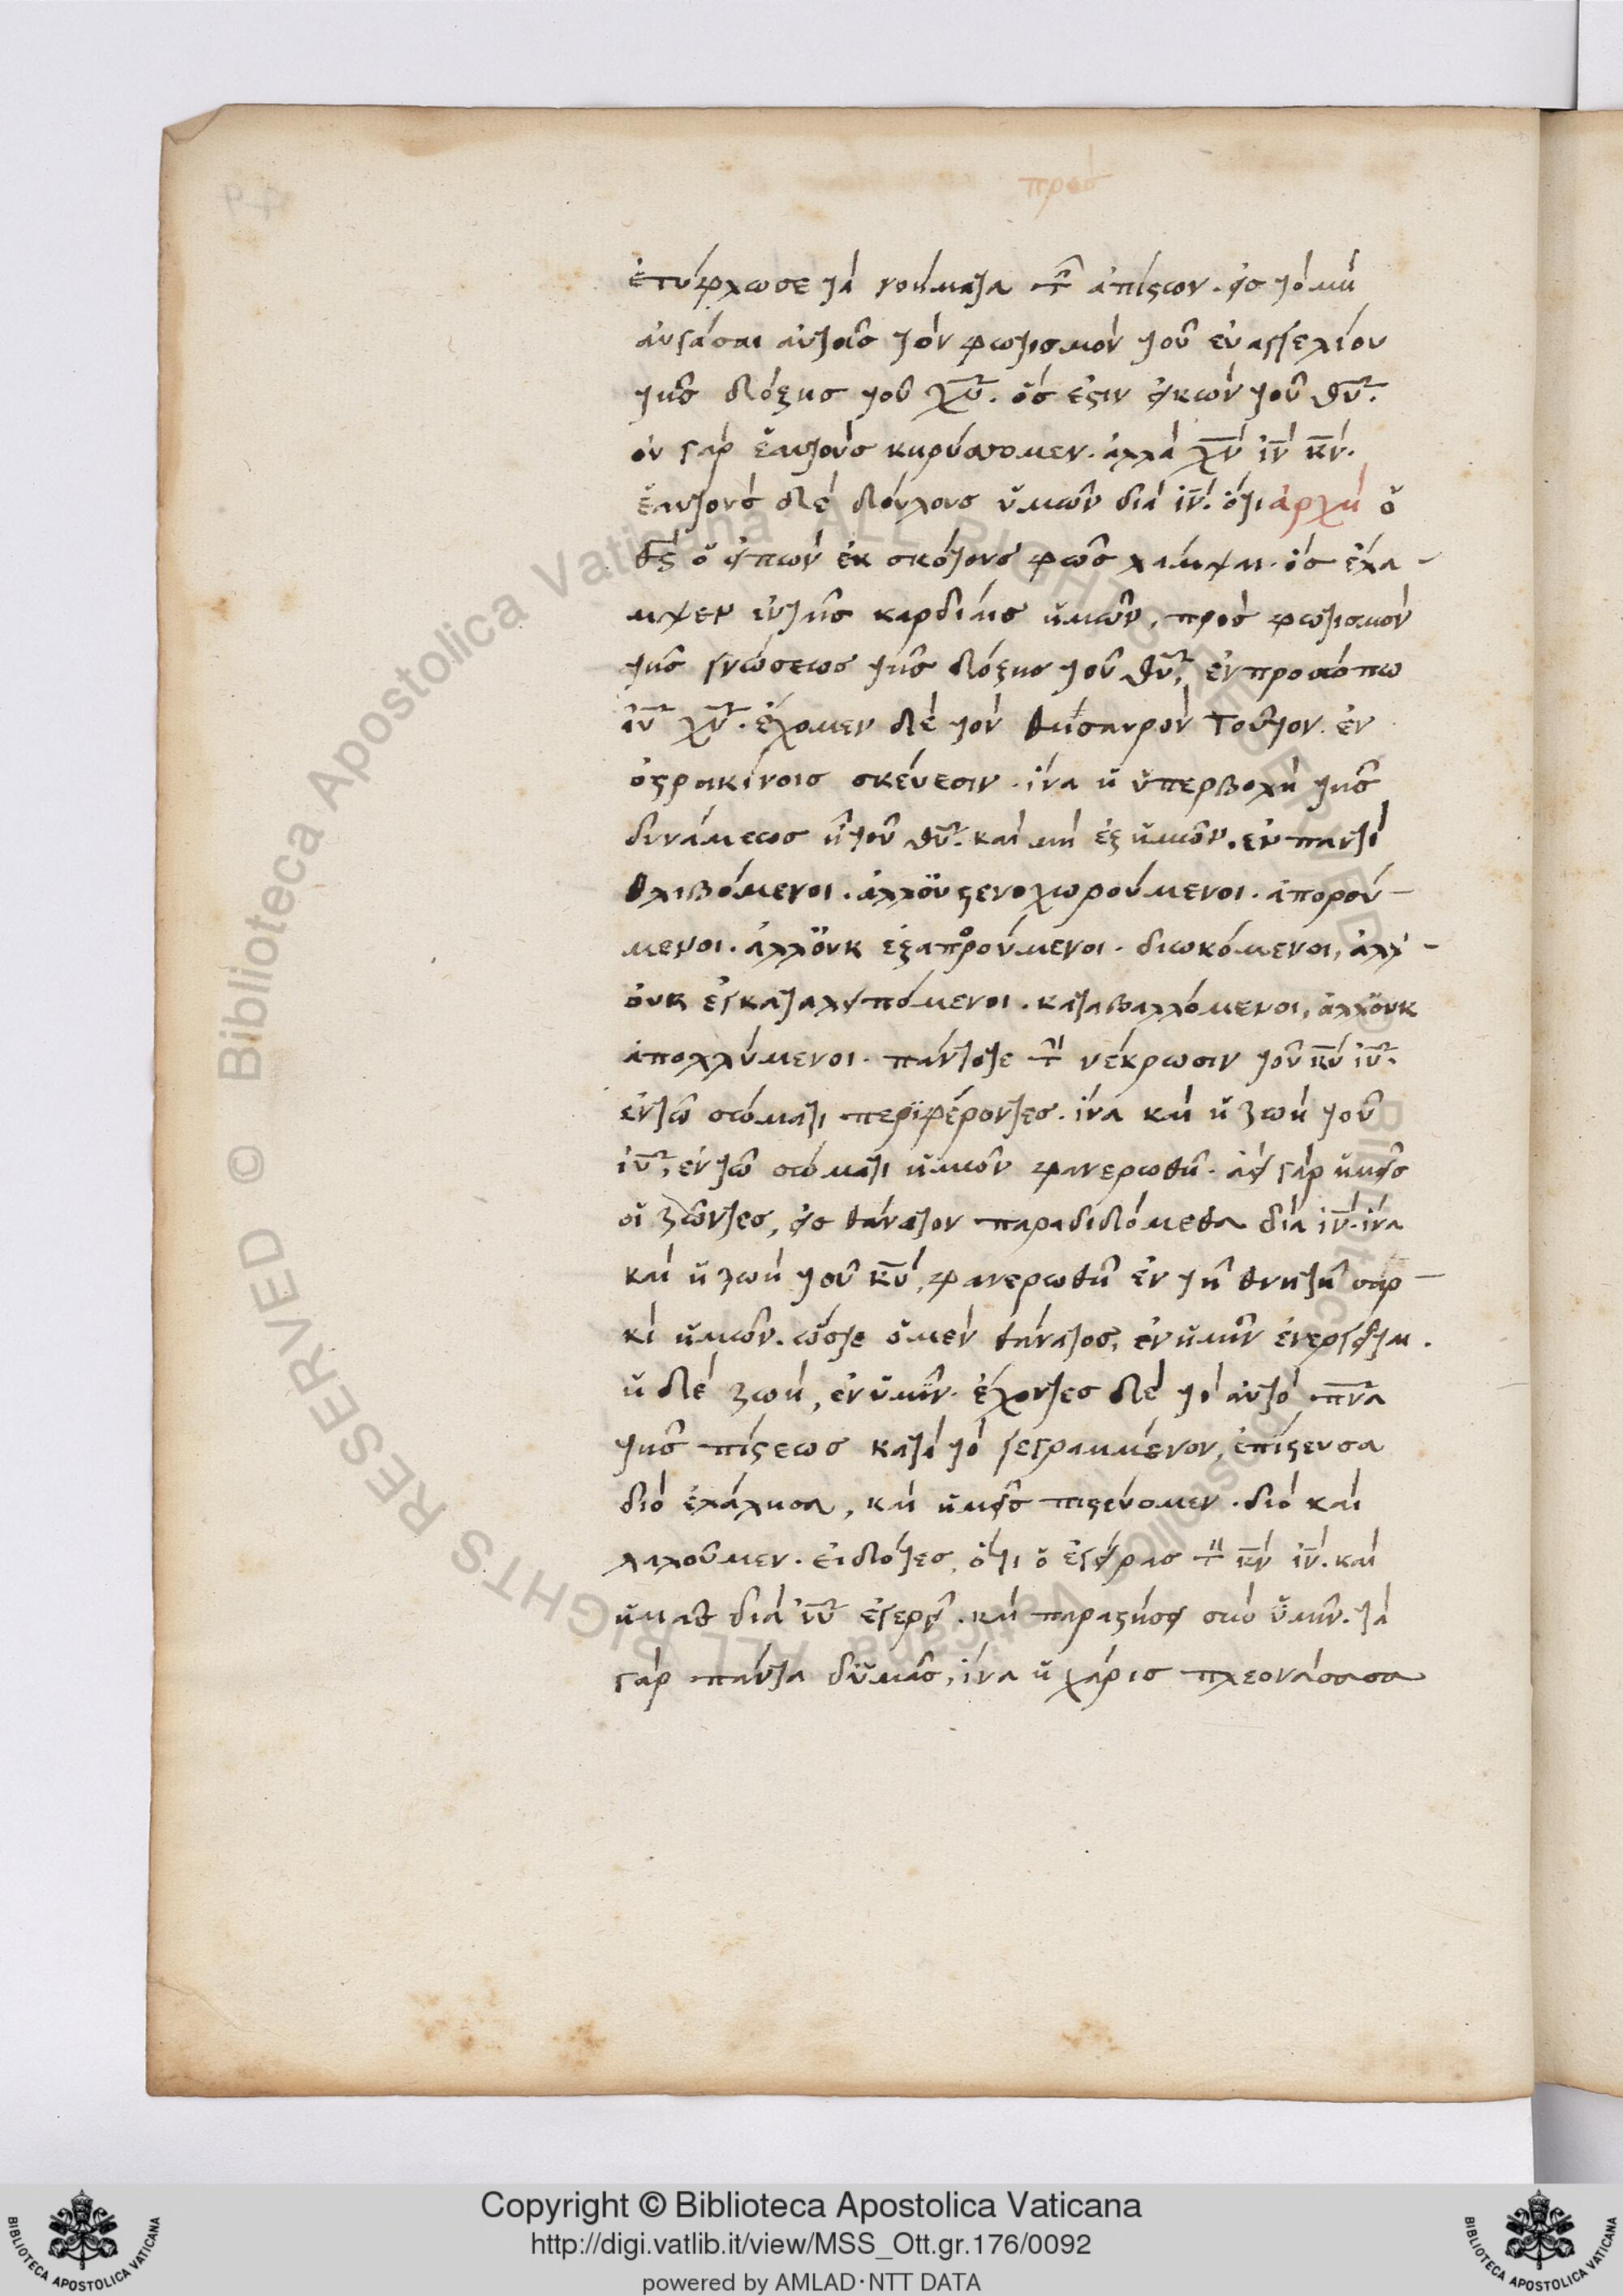 πρὸσ
ἐτύφλωσε τὰ νοήματα τῶν ἀπίστων. εἰσ τὸ μὴ
αὐγάσαι αὐτοῖσ τὸν φωτισμὸν τοῦ εὐαγγελίου
τῆσ δόξησ τοῦ χυ̅. ὅσ ἐστιν εἰκὼν τοῦ θυ̅.
οὐ γὰρ ἑαυτοὺσ κηρύσσομεν. ἀλλὰ χν̅ ιν̅ κν̅.
ἑαυτοὺσ δὲ δούλουσ ὑμῶν διὰ ιν̅. ὅτι ἀρχὴ ὁ
θς̅ ὁ εἰπὼν ἐκ σκότουσ φῶσ λάμψαι. ὃσ ἔλα-
μψεν ἐν τῆσ καρδίαισ ἡμῶν, πρὸσ φωτισμὸν
τῆσ γνώσεωσ τῆσ δόξησ τοῦ θυ̅, ἐν προσώπω
ιυ̅ χυ̅. ἔχομεν δὲ τὸν θησαυρὸν τοῦτον. ἐν
ὀστρακίνοισ σκέυεσιν. ἵνα ἡ ὑπερβολὴ τῆσ
δυνάμεωσ ἦ τοῦ θυ̅. καὶ μὴ ἐξ ἡμῶν. ἐν παντὶ
θλιβόμενοι. ἀλλοὐ στενοχωρούμενοι. ἀπορού-
μενοι. ἀλλοὐκ ἐξαπορούμενοι. διωκόμενοι, ἀλλ'-
οὐκ ἐγκαταλειπόμενοι. καταβαλλόμενοι, ἀλλοὐκ
ἀπολλύμενοι. πάντοτε τὴν νέκρωσιν τοῦ κυ̅ ιυ̅.
ἐν τῶ σώματι περιφέροντεσ. ἵνα καὶ ἡ ζωὴ τοῦ
ιυ̅, ἐν τῶ σώματι ἡμῶν φανερωθῆ. ἀεὶ γὰρ ἡμεῖσ
οἱ ζῶντεσ, εἰσ θάνατον παραδιδόμεθα διὰ ιν̅. ἵνα
καὶ ἡ ζωὴ τοῦ κυ̅, φανερωθῆ ἐν τῆ θνητῆ σαρ-
κὶ ἡμῶν. ὥστε ὁ μὲν θάνατοσ, ἐν ἡμῖν ἐνεργεῖται.
ἡ δὲ ζωὴ, ἐν ὑμῖν. ἔχοντεσ δὲ τὸ αὐτὸ πνα̅
τῆσ πίστεωσ κατὰ τὸ γεγραμμένον, ἐπίστευσα
διὸ ἐλάλησα, καὶ ἡμεῖσ πιστεύομεν. διὸ καὶ
λαλοῦμεν. εἰδότεσ, ὅτι ὁ ἐγείρασ τὸν κν̅ ιν̅. καὶ
ἡμᾶσ διὰ ιυ̅ ἐγερεῖ. καὶ παραστήσει σὺν ὑμῖν. τὰ
γὰρ πάντα δι ὑμᾶσ, ἵνα ἡ χάρισ πλεονάσασα
© Biblioteca Apostolica Vaticana ALL RIGHTS RESERVED
© Biblioteca Apostolica Vaticana ALL RIGHTS RESERVED
Copyright © Biblioteca Apostolica Vaticana
http://digi.vatlib.it/view/MSS_Ott.gr.176/0092
powered by AMLAD·NTT DATA
BIBLIOTECA APOSTOLICA VATICANA
BIBLIOTECA APOSTOLICA VATICANA